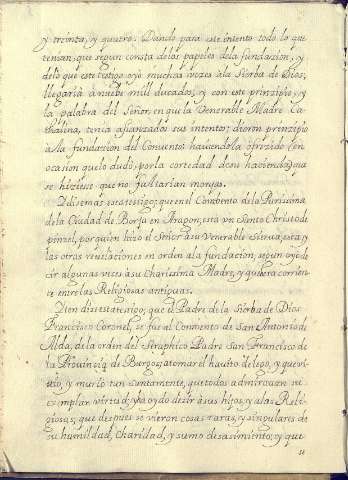 y treinta, y quatro. Dando para este intento todo lo que
tenian, que segun consta delos papeles dela fundacion, y
delo que este testigo oyò muchas vezes à la Sierba de Dios,
llegaria à nuebe mil ducados, y con este prinzipio, y
la palabra del Señor, en que la Venerable Madre Ca-
thalina, tenia afianzados sus intentos; dieron prinzipio
à la fundacion del Convento haviendola ofrezido (en
ocasion que lo dudò, por la cortedad de su hazienda) que
se hiziese que no faltarian monjas.
Y demas este testigo; que en el Combento dela Purisima
dela Ciudad de Borja en Aragon, està vn Santo Christo de
pinzel, por quien hizo el Señor à su Venerable Sierua, esta y
las otras revelaciones in orden ala fundacion, segun oyò de-
cir algunas vices à su Charisima Madre, y que era corrien-
te entre las Religiosas antiguas.
Yten dise este testigo; que el Padre de la Sierba de Dios
Francisco Coronel, se fue al Convento de San Antonio di
Alda, de la orden del Seraphico Padre San Francisco de
la Provincia de Burgos, à tomar el havito de lego, y que vi-
vio, y muriò tan santamente, que todos admiravan su
exemplar virtud; y ha oydo dezir à sus hijos, y a las Reli-
giosas; que despues se vieron cosas raras, y singulares de
su humildad, Charidad, y sumo desasimiento; y que